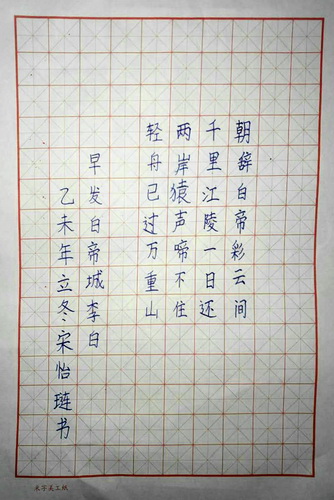 朝辞白帝彩云间
千里江陵一日还
两岸猿声啼不住
轻舟已过万重山
早发白帝城李白
乙未年立冬、宋怡琏书
米字美工纸